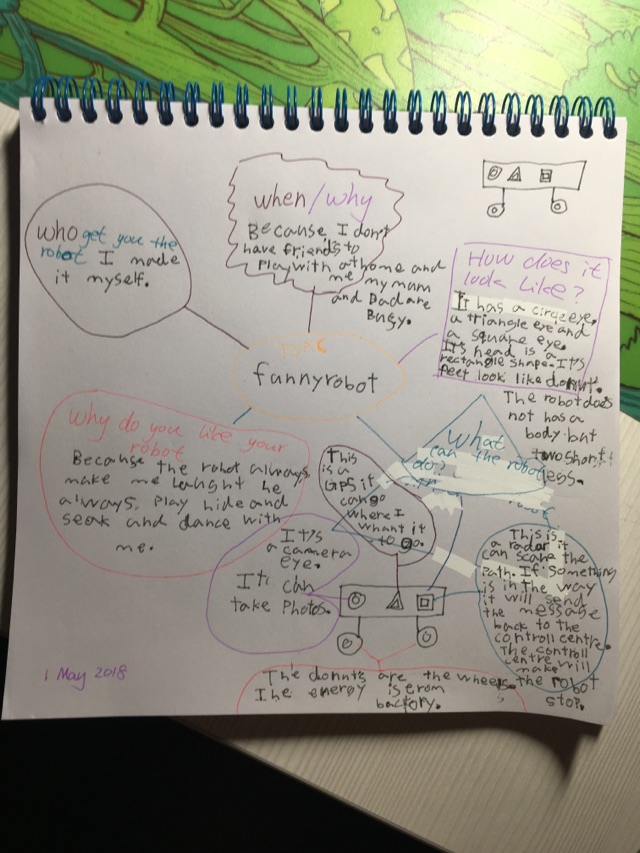 who get you the
robot I made
it myself.
when/why
Because I don't
have friends to
play with at home and
me my mum
and Dad are
Busy.
How does it
look like?
It has a circle eye,
a triangle eye and
a square eye.
It's head is a
rectangle shape. It's
feet look like donut.
The robot does
not has a
body but
two short
legs.
funnyrobot
Why do you like your
robot
Because the robot always
make me laught he
always play hide and
seak and dance with
me.
This
is a
GPS it
can go
where I
whant it
to go.
What
can the robot
do?
It's
a camera
eye.
It can
take photos.
This is
a radar it
can scane the
path. If something
is in the way
it will send
the message
back to the
controll centre.
The controll
centre will
make
the robot
stop.
The donuts are the wheels.
The energy is from
bactory.
1 May 2018